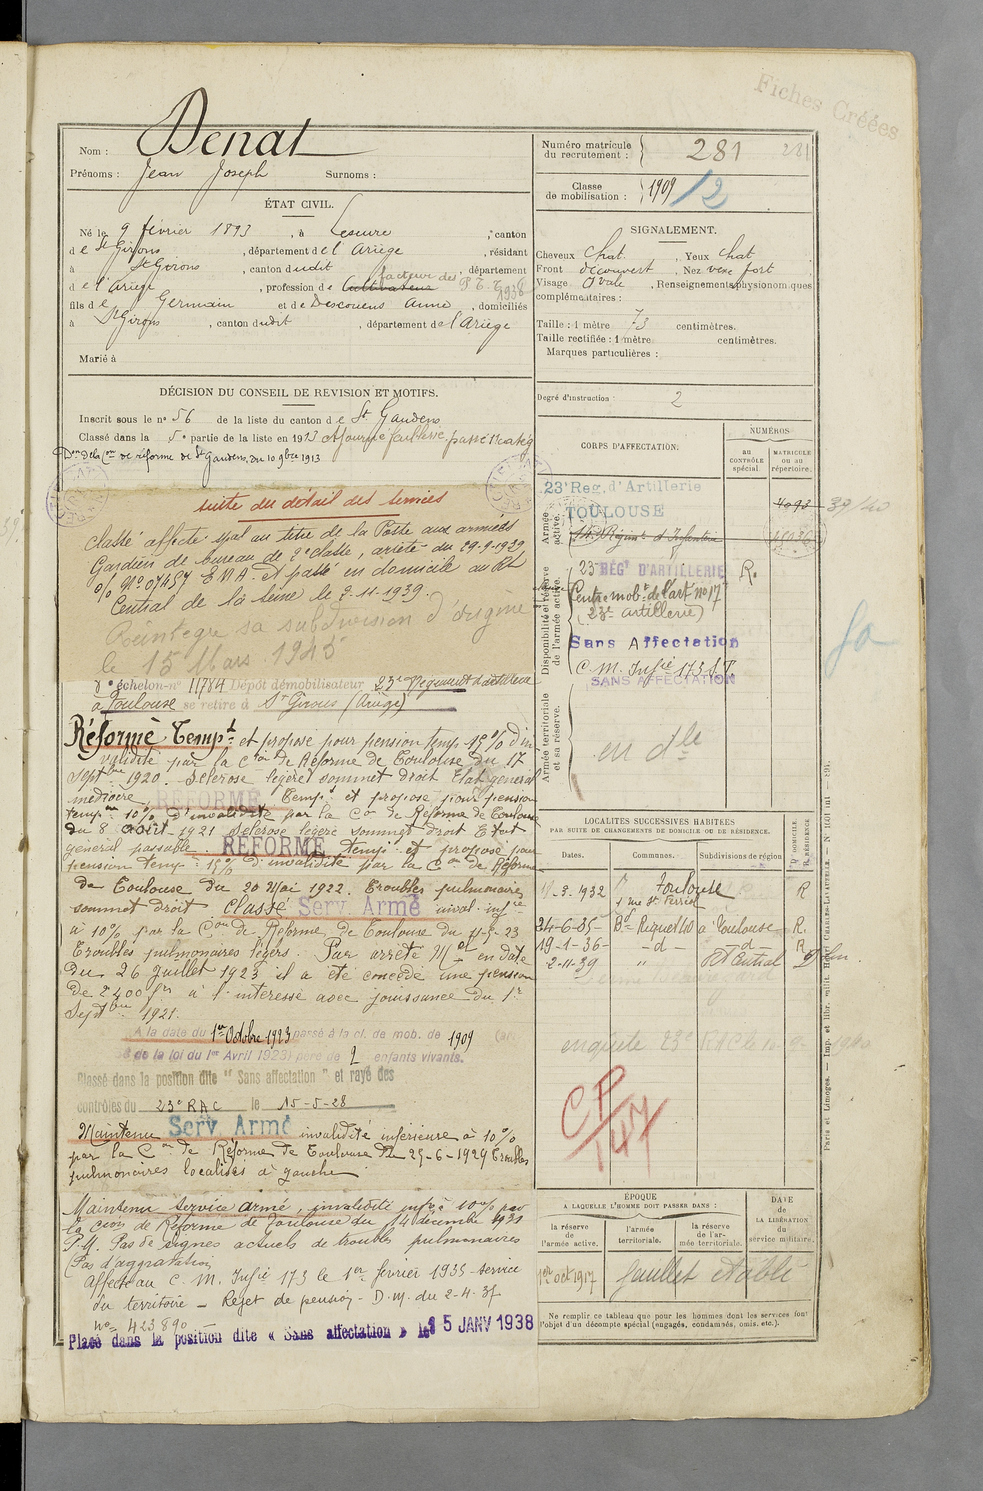 Fiches Créées
Nom : Denat
Prénoms : Jean Joseph Surnoms :
ÉTAT CIVIL.
Né le 9 février 1893, à Lescure, canton
de St Girons, département de l'Ariège, résidant
à St Girons, canton dudit, département
de l'Ariège, profession de Cultivateur facteur des P.T.T. 1938
fils de Germain et de Descouens Anne, domiciliés
à St Girons, canton dudit, département de l'Ariège
Marié à
DÉCISION DU CONSEIL DE REVISION ET MOTIFS.
Inscrit sous le no 56 de la liste du canton de St Gaudens
Classé dans la 5e partie de la liste en 1913 Ajourné faiblesse, passé
Don de la Con de réforme de St Gaudens, du 10 9bre 1913
suite du détail des services
Classé affecté spal au titre de la Poste aux armées
Gardien de bureau de 2e classe, arrêté du 29-9-1939
o/o No 07457 EMA et passé en domicile au Rt
Central de la Seine le 2-11-1939.
Réintègre sa subdivision d'origine
le 15 Mars 1945
échelon no 11784 Dépôt démobilisateur 23e Régiment d'artillerie
à Toulouse se retire à St Girons (Ariège)
Réformé Tempt et proposé pour pension temp. 15% d'in
validité par la Cion de Réforme de Toulouse du 17
Septbre 1920. Sclérose légère sommet droit Etat général
médiocre. RÉFORMÉ Tempt et proposé pour pension
tempre 10% d'invalidité par la Con de Réforme de Toulouse
du 8 Août 1921 Sclérose légère sommet droit Etat
général passable. RÉFORMÉ temp. et proposé pour
pension temp. 15% d'invalidité par la Con de Réforme
de Toulouse du 20 Mai 1922. Troubles pulmonaires
sommet droit Classé Serv. Armé inval. infre
à 10% par la Con de Réforme de Toulouse du 11-5-23
Troubles pulmonaires légers. Par arrêté Mel en date
du 26 juillet 1923 il a été concédé une pension
de 2400 frs à l'intéressé avec jouissance du 1er
Septbre 1921.
A la date du 1er Octobre 1923 passé à la cl. de mob. de 1909
de la loi du 1er Avril 1923) père de 2 enfants vivants.
Classé dans la position dite "Sans affectation" et rayé des
contrôles du 23e RAC le 15-5-28
Maintenu Serv. Armé invalidité inférieure à 10%
par la Con de Réforme de Toulouse du 25-6-1929 Troubles
pulmonaires localisés à gauche
Maintenu service armé, invalidité infre à 10% par
la Cion de Réforme de Toulouse du 14 décembre 1931
P.M. Pas de signes actuels de troubles pulmonaires
(Pas d'aggravation)
Affecté au C. M. Infie 173 le 1er février 1935 - Service
du territoire - Rejet de pension - D.M. du 2-4-35
no 423890
Placé dans la position dite « Sans affectation » le 15 JANV 1938
Numéro matricule du recrutement : 281 281
Classe de mobilisation : 1909 /2
SIGNALEMENT.
Cheveux chat. , Yeux chat
Front découvert , Nez fort
Visage ovale , Renseignements physionomiques
complémentaires :
Taille : 1 mètre 73 centimètres.
Taille rectifiée : 1 mètre centimètres.
Marques particulières :
Degré d'instruction : 2
CORPS D'AFFECTATION.
NUMÉROS
au CONTRÔLE spécial.
MATRICULE ou au répertoire.
Armée active.
23e Reg. d'Artillerie
TOULOUSE
14e Régimt d'Infanterie
39/40
Disponibilité et réserve de l'armée active.
23e RÉGt D'ARTILLERIE R.
Centre mobe de l'art no 17
(23e artillerie)
Sans Affectation
C. M. Infie 173 S.T.
SANS AFFECTATION
Armée territoriale et sa réserve.
en dle
LOCALITÉS SUCCESSIVES HABITÉES
PAR SUITE DE CHANGEMENTS DE DOMICILE OU DE RÉSIDENCE.
Dates. Communes. Subdivisions de région
D. DOMICILE. R. RÉSIDENCE
-3-1932 Toulouse R
24-6-35- Bd Riquet 110 à Toulouse R.
19-1-36- -d- -d- R
2-11-39 " Rt Central
enquête 23e RAC le
CP
147
ÉPOQUE
A LAQUELLE L'HOMME DOIT PASSER DANS :
la réserve de l'armée active.
l'armée territoriale.
la réserve de l'armée territoriale.
DATE DE LA LIBÉRATION du service militaire.
1er oct 1917 feuillet établi
Ne remplir ce tableau que pour les hommes dont les services font
l'objet d'un décompte spécial (engagés, condamnés, omis, etc.).
Paris et Limoges. — Imp. et libr. milit. Henri Charles-Lavauzelle.